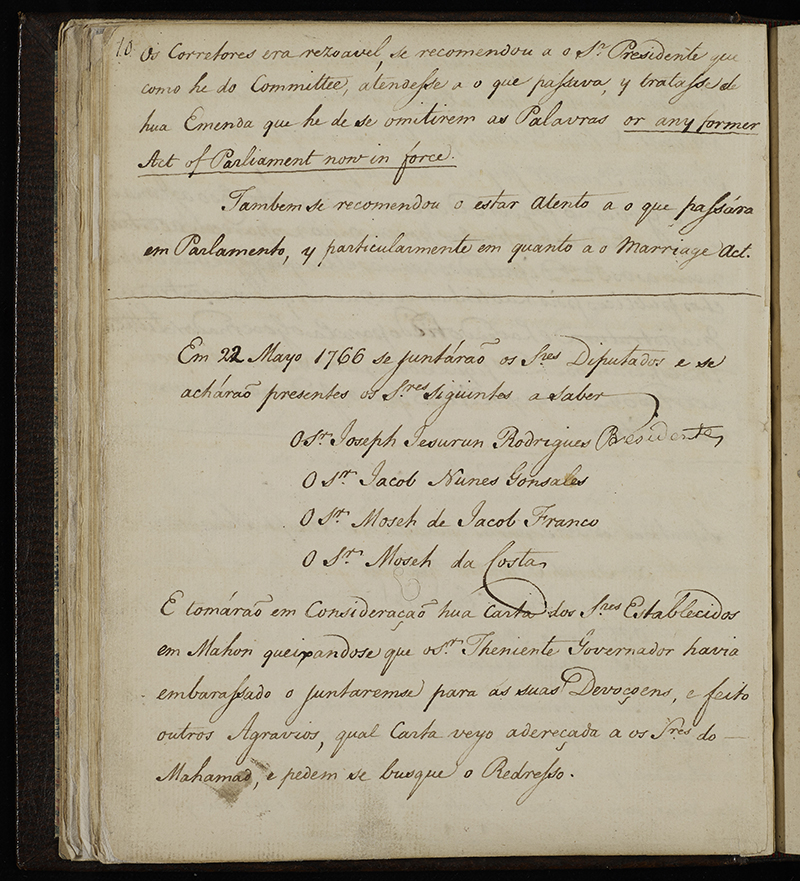 10
os Corretores era rezoavel, se recomendou a o Sr. Presidente que
como he do Committee, atendesse a o que passava, y tratasse de
hua Emenda que he de se omitirem as Palavras or any former
Act of Parliament now in force.
Tambem se recomendou o estar atento a o que passára
em Parlamento, y particularmente em quanto a o Marriage Act.
Em 22 Mayo 1766 se juntárão os Sres. Diputados e se
achárão presentes os Sres. siguintes a saber
O Sr. Joseph Jesurun Rodrigues Presidente
O Sr. Jacob Nunes Gonsales
O Sr. Moseh de Jacob Franco
O Sr. Moseh da Costa
E tomárão em Consideração hua Carta dos Sres. Establecidos
em Mahon queixandose que o Sr. Theniente Governador havia
embarassado o juntaremse para as suas Devoçoens, e feito
outros Agravios, qual Carta veyo adereçada a os Sres. do —
Mahamad, e pedem se busque o Redresso.